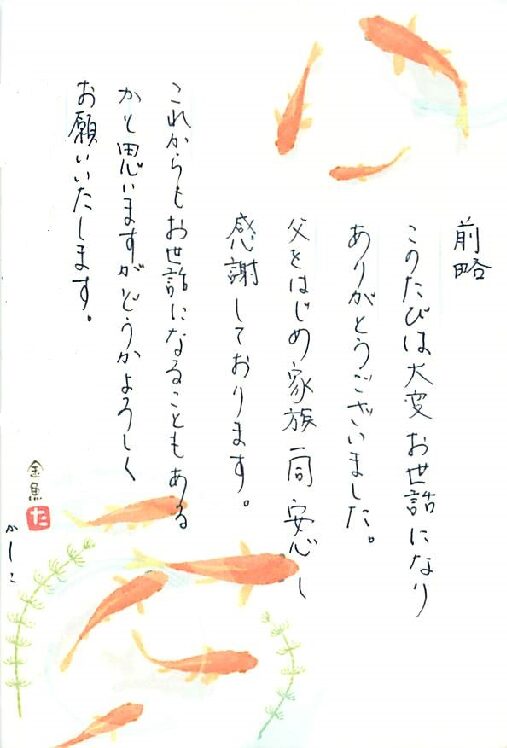 前略
このたびは大変お世話になり
ありがとうございました。
父をはじめ家族一同安心し
感謝しております。
これからもお世話になることもある
かと思いますがどうかよろしく
お願いいたします。
かしこ
金魚
た